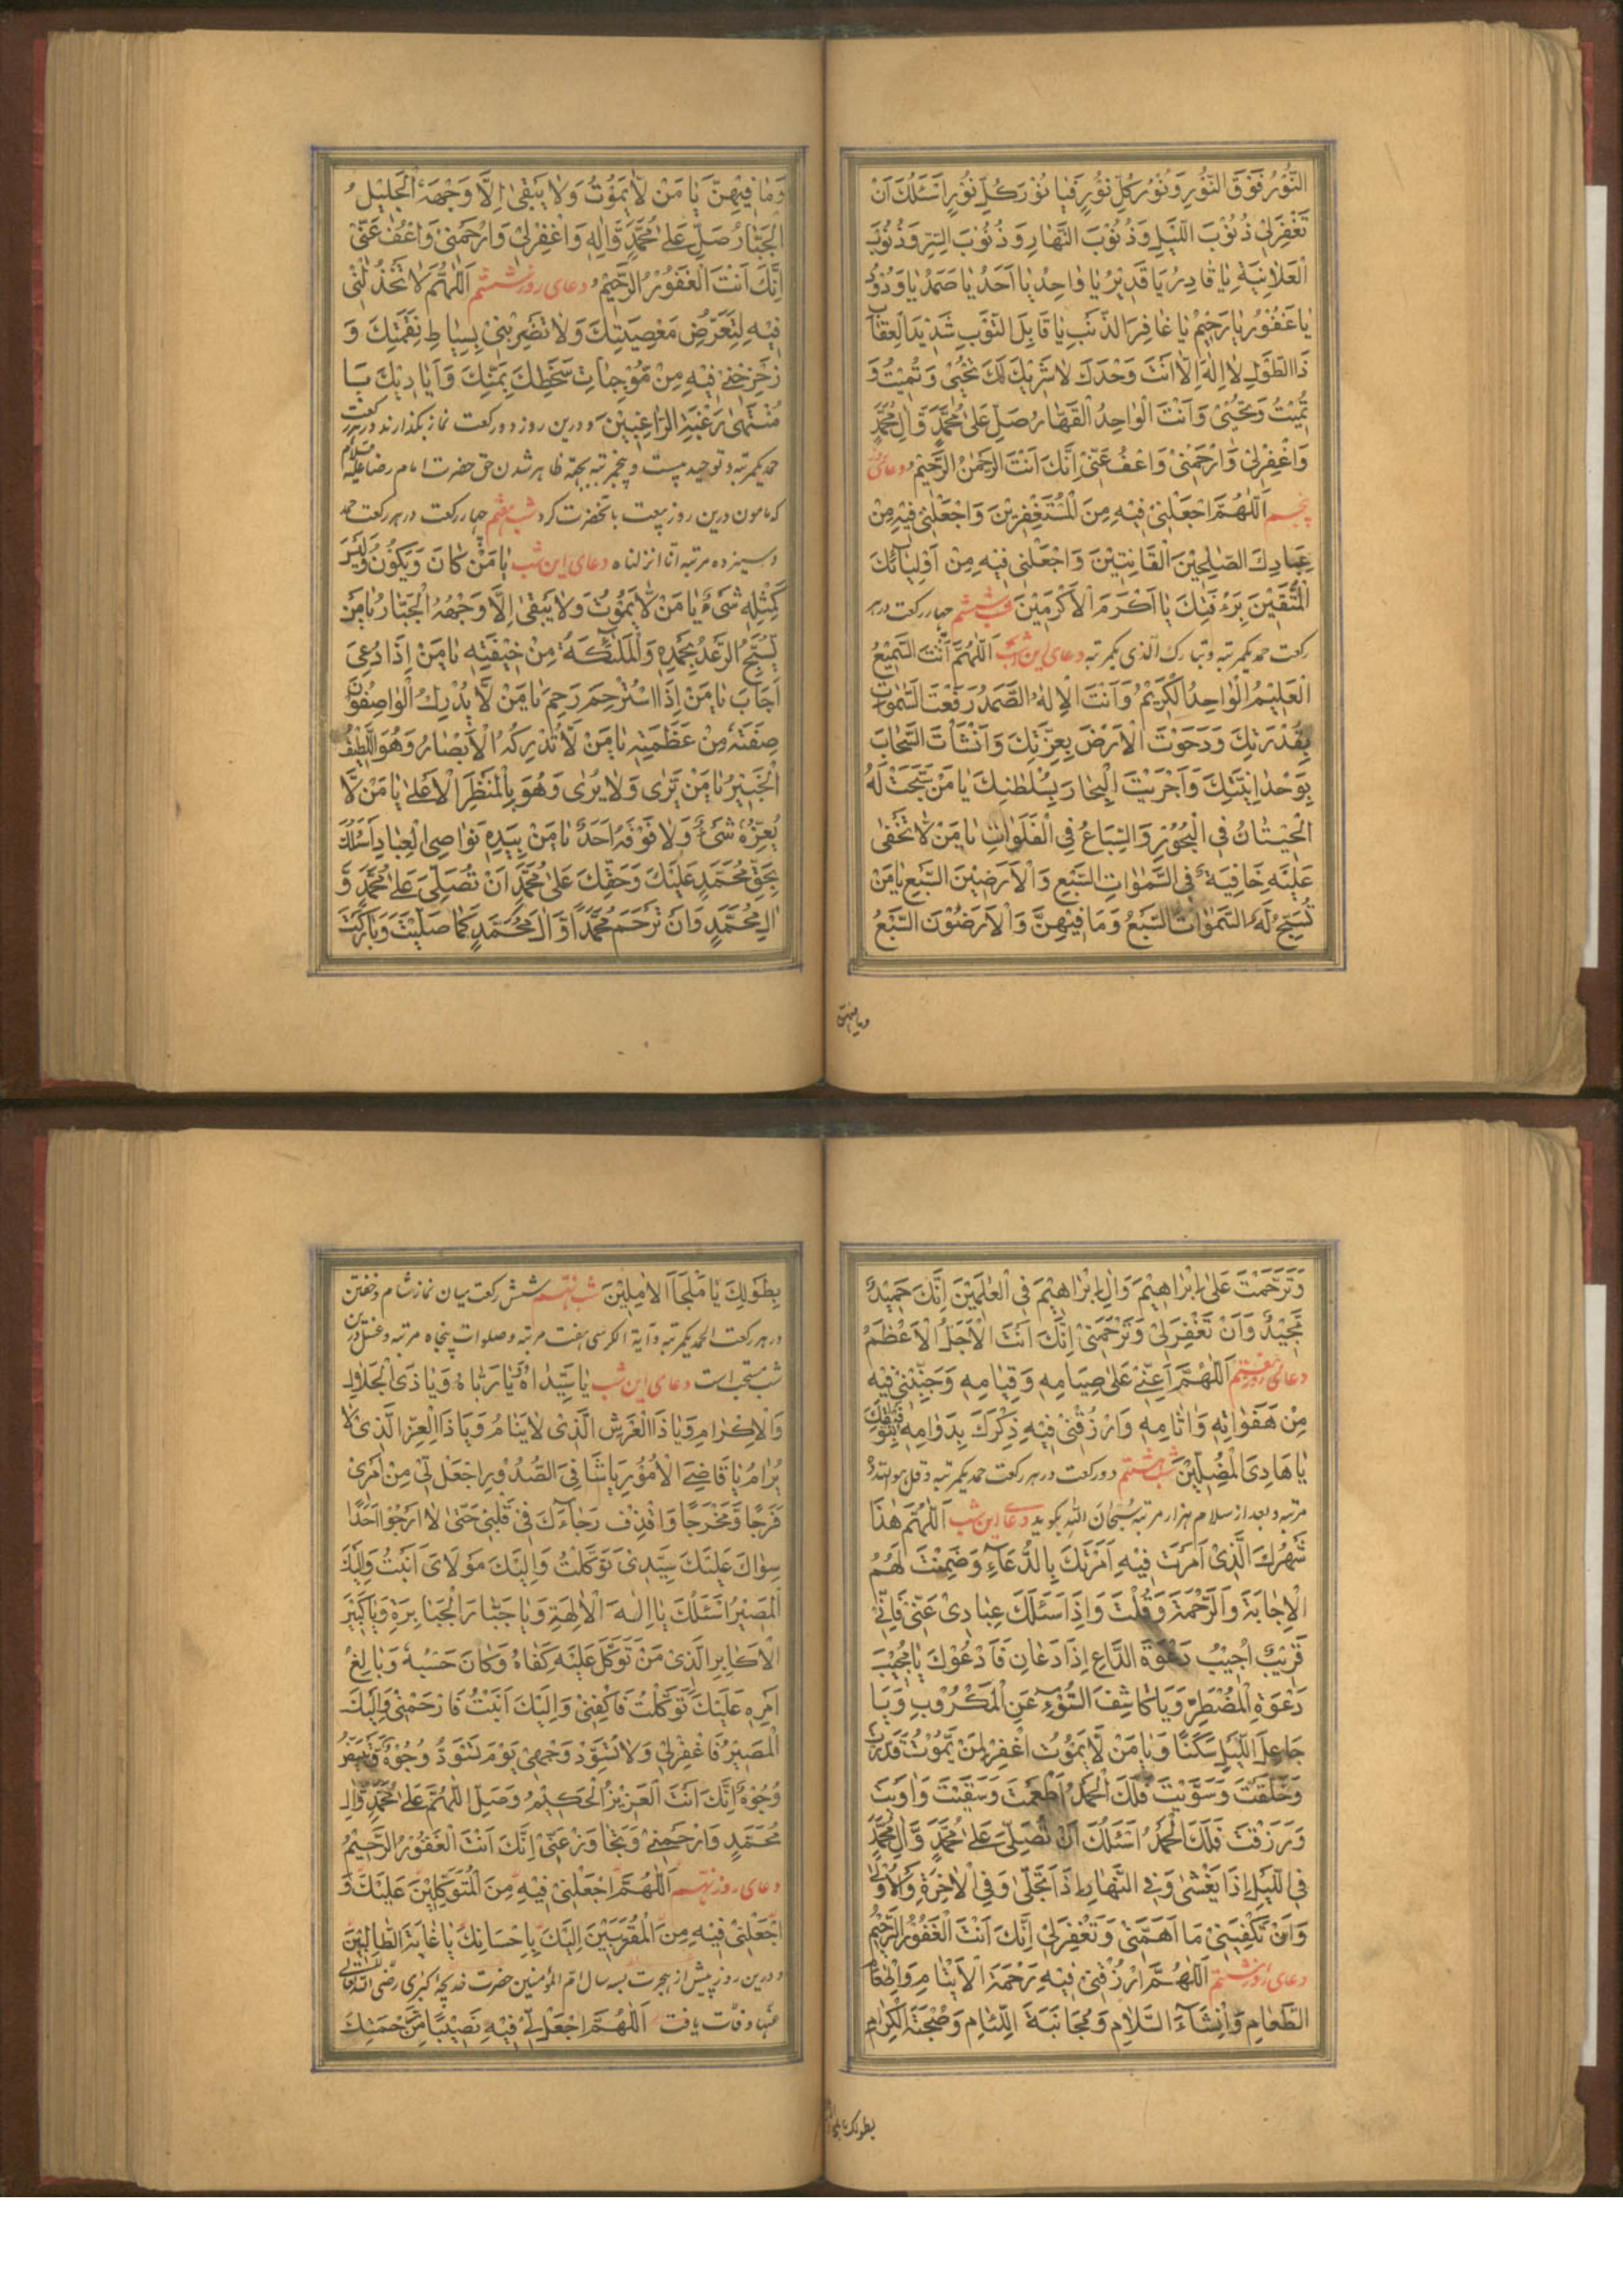 النُّوْرُ فَوْقَ النُّوْرِ وَنُوْرَ كُلِّ نُوْرٍ فَيَا نُوْرَ كُلِّ نُوْرٍ اَسْئَلُكَ اَنْ
تَغْفِرَلِیْ ذُنُوْبَ اللَّيْلِ وَذُنُوْبَ النَّهَارِ وَذُنُوْبَ السِّرِّ وَذُنُوْبَ
الْعَلَانِيَةِ يَا قَادِرُ يَا قَدِيْرُ يَا وَاحِدُ يَا اَحَدُ يَا صَمَدُ يَا وَدُوْدُ
يَا غَفُوْرُ يَا رَحِيْمُ يَا غَافِرَ الذَّنْبِ يَا قَابِلَ التَّوْبِ شَدِيْدَ الْعِقَابِ
ذَا الطَّوْلِ لَا اِلٰهَ اِلَّا اَنْتَ وَحْدَكَ لَا شَرِيْكَ لَكَ تُحْيِیْ وَتُمِيْتُ وَ
تُمِيْتُ وَتُحْيِیْ وَاَنْتَ الْوَاحِدُ الْقَهَّارُ صَلِّ عَلٰی مُحَمَّدٍ وَّاٰلِ مُحَمَّدٍ
وَاغْفِرْلِیْ وَارْحَمْنِیْ وَاعْفُ عَنِّیْ اِنَّكَ اَنْتَ الرَّحْمٰنُ الرَّحِيْمُ دعای روز
پنجم اَللّٰهُمَّ اجْعَلْنِیْ فِيْهِ مِنَ الْمُسْتَغْفِرِيْنَ وَاجْعَلْنِیْ فِيْهِ مِنْ
عِبَادِكَ الصَّالِحِيْنَ الْقَانِتِيْنَ وَاجْعَلْنِیْ فِيْهِ مِنْ اَوْلِيَآئِكَ
الْمُتَّقِيْنَ بِرَءْفَتِكَ يَا اَكْرَمَ الْاَكْرَمِيْنَ شب ششم چهار رکعت در هر
رکعت حمد یکمرتبه و تبارك الذی یکمرتبه دعای این شب اَللّٰهُمَّ اَنْتَ السَّمِيْعُ
الْعَلِيْمُ الْوَاحِدُ الْكَرِيْمُ وَاَنْتَ الْاِلٰهُ الصَّمَدُ رَفَعْتَ السَّمٰوَاتِ
بِقُدْرَتِكَ وَدَحَوْتَ الْاَرْضَ بِعِزَّتِكَ وَاَنْشَأْتَ السَّحَابَ
بِوَحْدَانِيَّتِكَ وَاَجْرَيْتَ الْبِحَارَ بِسُلْطَانِكَ يَا مَنْ سَبَّحَتْ لَهُ
الْحِيْتَانُ فِی الْبُحُوْرِ وَالسِّبَاعُ فِی الْفَلَوَاتِ يَا مَنْ لَا تَخْفٰی
عَلَيْهِ خَافِيَةٌ فِی السَّمٰوَاتِ السَّبْعِ وَالْاَرَضِيْنَ السَّبْعِ يَا مَنْ
تُسَبِّحُ لَهُ السَّمٰوَاتُ السَّبْعُ وَمَا فِيْهِنَّ وَالْاَرَضُوْنَ السَّبْعُ
وما فیهن
وَمَا فِيْهِنَّ يَا مَنْ لَا يَمُوْتُ وَلَا يَبْقٰی اِلَّا وَجْهَهُ الْجَلِيْلُ
الْجَبَّارُ صَلِّ عَلٰی مُحَمَّدٍ وَّاٰلِهٖ وَاغْفِرْلِیْ وَارْحَمْنِیْ وَاعْفُ عَنِّیْ
اِنَّكَ اَنْتَ الْغَفُوْرُ الرَّحِيْمُ دعای روز ششم اَللّٰهُمَّ لَا تَخْذُلْنِیْ
فِيْهِ لِتَعَرُّضِ مَعْصِيَتِكَ وَلَا تَضْرِبْنِیْ بِسِيَاطِ نِقْمَتِكَ وَ
زَحْزِحْنِیْ فِيْهِ مِنْ مُوْجِبَاتِ سَخَطِكَ بِمَنِّكَ وَاَيَادِيْكَ يَا
مُنْتَهٰی رَغْبَةِ الرَّاغِبِيْنَ و درین روز دو رکعت نماز بگذارند در هر رکعت
حمد یکمرتبه و توحید بیست و پنجمرتبه بجهة ظاهر شدن حق حضرت امام رضا علیه السلام
که مامون درین روز بیعت بآنحضرت کرد شب هفتم چهار رکعت در هر رکعت حمد
و سیزده مرتبه انا انزلناه دعای این شب يَا مَنْ كَانَ وَيَكُوْنُ وَلَيْسَ
كَمِثْلِهٖ شَیْءٌ يَا مَنْ لَّا يَمُوْتُ وَلَا يَبْقٰی اِلَّا وَجْهُهُ الْجَبَّارُ يَا مَنْ
يُسَبِّحُ الرَّعْدُ بِحَمْدِهٖ وَالْمَلٰئِكَةُ مِنْ خِيْفَتِهٖ يَا مَنْ اِذَا دُعِیَ
اَجَابَ يَا مَنْ اِذَا اسْتُرْحِمَ رَحِمَ يَا مَنْ لَّا يُدْرِكُ الْوَاصِفُوْنَ
صِفَتَهٗ مِنْ عَظَمَتِهٖ يَا مَنْ لَّا تُدْرِكُهُ الْاَبْصَارُ وَهُوَ اللَّطِيْفُ
الْخَبِيْرُ يَا مَنْ يَّرٰی وَلَا يُرٰی وَهُوَ بِالْمَنْظَرِ الْاَعْلٰی يَا مَنْ لَّا
يُعِزُّهٗ شَیْءٌ وَلَا فَوْقَهٗ اَحَدٌ يَا مَنْ بِيَدِهٖ نَوَاصِی الْعِبَادِ اَسْئَلُكَ
بِحَقِّ مُحَمَّدٍ عَلَيْكَ وَحَقِّكَ عَلٰی مُحَمَّدٍ اَنْ تُصَلِّیَ عَلٰی مُحَمَّدٍ وَّ
اٰلِ مُحَمَّدٍ وَاَنْ تَرْحَمَ مُحَمَّدًا وَّاٰلَ مُحَمَّدٍ كَمَا صَلَّيْتَ وَبَارَكْتَ
وَتَرَحَّمْتَ عَلٰی اِبْرَاهِيْمَ وَاٰلِ اِبْرَاهِيْمَ فِی الْعٰلَمِيْنَ اِنَّكَ حَمِيْدٌ
مَّجِيْدٌ وَاَنْ تَغْفِرَلِیْ وَتَرْحَمَنِیْ اِنَّكَ اَنْتَ الْاَجَلُّ الْاَعْظَمُ
دعای روز هفتم اَللّٰهُمَّ اَعِنِّیْ عَلٰی صِيَامِهٖ وَقِيَامِهٖ وَجَنِّبْنِیْ فِيْهِ
مِنْ هَفَوَاتِهٖ وَاٰثَامِهٖ وَارْزُقْنِیْ فِيْهِ ذِكْرَكَ بِدَوَامِهٖ بِتَوْفِيْقِكَ
يَا هَادِیَ الْمُضِلِّيْنَ شب هشتم دو رکعت در هر رکعت حمد یکمرتبه و قل هو الله ده
مرتبه و بعد از سلام هزار مرتبه سُبْحَانَ اللّٰهِ بگوید دعای این شب اَللّٰهُمَّ هٰذَا
شَهْرُكَ الَّذِیْ اَمَرْتَ فِيْهِ اَمَرْتَكَ بِالدُّعَآءِ وَضَمِنْتَ لَهُمُ
الْاِجَابَةَ وَالرَّحْمَةَ وَقُلْتَ وَاِذَا سَئَلَكَ عِبَادِیْ عَنِّیْ فَاِنِّیْ
قَرِيْبٌ اُجِيْبُ دَعْوَةَ الدَّاعِ اِذَا دَعَانِ فَاَدْعُوْكَ يَا مُجِيْبَ
دَعْوَةِ الْمُضْطَرِّ وَيَا كَاشِفَ السُّوْءِ عَنِ الْمَكْرُوْبِ وَيَا
جَاعِلَ اللَّيْلِ سَكَنًا وَيَا مَنْ لَّا يَمُوْتُ اغْفِرْ لِمَنْ يَّمُوْتُ قَدَّرْتَ
وَخَلَقْتَ وَسَوَّيْتَ فَلَكَ الْحَمْدُ اَطْعَمْتَ وَسَقَيْتَ وَاٰوَيْتَ
وَرَزَقْتَ فَلَكَ الْحَمْدُ اَسْئَلُكَ اَنْ تُصَلِّیَ عَلٰی مُحَمَّدٍ وَّاٰلِ مُحَمَّدٍ
فِی اللَّيْلِ اِذَا يَغْشٰی وَفِی النَّهَارِ اِذَا تَجَلّٰی وَفِی الْاٰخِرَةِ وَالْاُوْلٰی
وَاَنْ تَكْفِيَنِیْ مَا اَهَمَّنِیْ وَتَغْفِرَلِیْ اِنَّكَ اَنْتَ الْغَفُوْرُ الرَّحِيْمُ
دعای روز هشتم اَللّٰهُمَّ ارْزُقْنِیْ فِيْهِ رَحْمَةَ الْاَيْتَامِ وَاِطْعَامَ
الطَّعَامِ وَاِنْشَآءَ السَّلَامِ وَمُجَانَبَةَ اللِّئَامِ وَصُحْبَةَ الْكِرَامِ
بطولك یا ملجأ
بِطَوْلِكَ يَا مَلْجَاَ الْاٰمِلِيْنَ شب نهم شش رکعت میان نماز شام و خفتن
در هر رکعت الحمد یکمرتبه و آیة الکرسی هفت مرتبه و صلوات پنجاه مرتبه و غسل درین
شب مستحب است دعای این شب يَا سَيِّدَاهُ يَا رَبَّاهُ وَيَا ذَی الْجَلَالِ
وَالْاِكْرَامِ وَيَا ذَا الْعَرْشِ الَّذِیْ لَا يَنَامُ وَيَا ذَا الْعِزِّ الَّذِیْ لَا
يُرَامُ يَا قَاضِیَ الْاُمُوْرِ يَا شَافِیَ الصُّدُوْرِ اجْعَلْ لِّیْ مِنْ اَمْرِیْ
فَرَجًا وَّمَخْرَجًا وَاقْذِفْ رَجَآءَكَ فِیْ قَلْبِیْ حَتّٰی لَا اَرْجُوْا اَحَدًا
سِوَاكَ عَلَيْكَ سَيِّدِیْ تَوَكَّلْتُ وَاِلَيْكَ مَوْلَایَ اَنَبْتُ وَاِلَيْكَ
الْمَصِيْرُ اَسْئَلُكَ يَا اِلٰهَ الْاٰلِهَةِ وَيَا جَبَّارَ الْجَبَابِرَةِ وَيَا كَبِيْرَ
الْاَكَابِرِ الَّذِیْ مَنْ تَوَكَّلَ عَلَيْهِ كَفَاهُ وَكَانَ حَسْبُهٗ وَبَالِغُ
اَمْرِهٖ عَلَيْكَ تَوَكَّلْتُ فَاكْفِنِیْ وَاِلَيْكَ اَنَبْتُ فَارْحَمْنِیْ وَاِلَيْكَ
الْمَصِيْرُ فَاغْفِرْلِیْ وَلَا تُسَوِّدْ وَجْهِیْ يَوْمَ تَسْوَدُّ وُجُوْهٌ وَتَبْيَضُّ
وُجُوْهٌ اِنَّكَ اَنْتَ الْعَزِيْزُ الْحَكِيْمُ وَصَلِّ اللّٰهُمَّ عَلٰی مُحَمَّدٍ وَّاٰلِ
مُحَمَّدٍ وَارْحَمْنِیْ وَتَجَاوَزْ عَنِّیْ اِنَّكَ اَنْتَ الْغَفُوْرُ الرَّحِيْمُ
دعای روز نهم اَللّٰهُمَّ اجْعَلْنِیْ فِيْهِ مِنَ الْمُتَوَكِّلِيْنَ عَلَيْكَ وَ
اجْعَلْنِیْ فِيْهِ مِنَ الْمُقَرَّبِيْنَ اِلَيْكَ بِاِحْسَانِكَ يَا غَايَةَ الطَّالِبِيْنَ
و درین روز پیش از هجرت بسه سال ام المؤمنین حضرت خدیجه کبری رضی الله تعالی
عنها وفات یافت اَللّٰهُمَّ اجْعَلْ لِّیْ فِيْهِ نَصِيْبًا مِّنْ رَّحْمَتِكَ